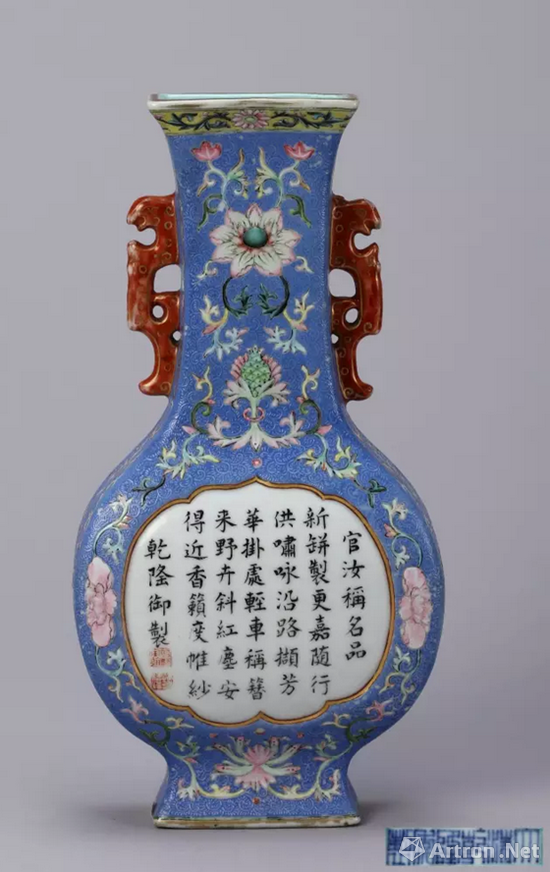 官汝稱名品
新缾製更嘉隨行
供嘯咏沿路擷芳
華掛處輕車稱簪
来野卉斜紅塵安
得近香籟度帷紗
乾隆御製
Artron.Net